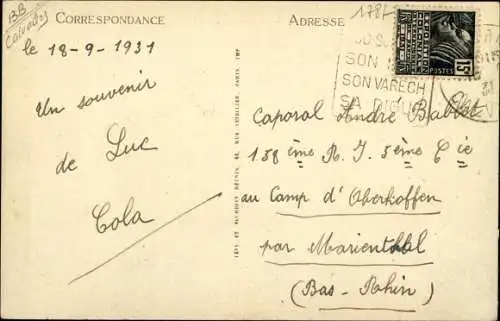 BB
Calvados
CORRESPONDANCE
ADRESSE
1787
le 18-9-1931
Un souvenir
de Luc
Cola
SON
SON VARECH
SA DIGUE
POSTES
15c
Caporal André Bablot
158 ème R.I. 5ème Cie
au Camp d'Oberhoffen
par Marienthal
(Bas-Rhin)